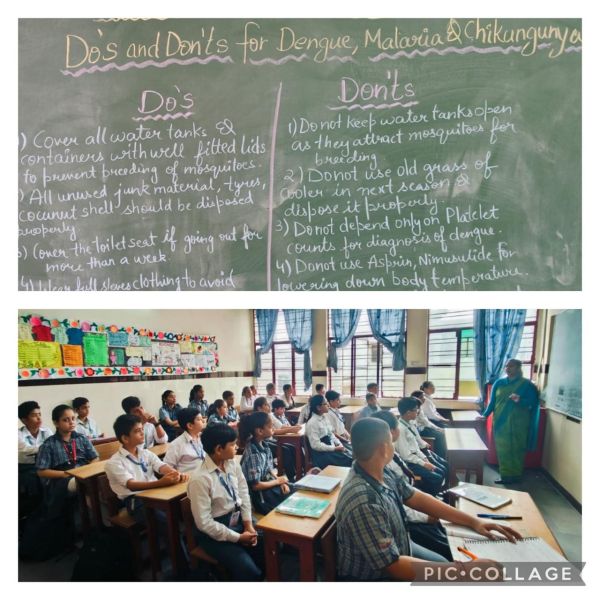 Do's and Don'ts for Dengue, Malaria & Chikungunya
Do's
1) Cover all water tanks &
containers with well fitted lids
to prevent breeding of mosquitoes.
2) All unused junk material, tyres,
coconut shell should be disposed
properly
3) Cover the toilet seat if going out for
more than a week.
4) Wear full sleeves clothing to avoid
Don'ts
1) Do not keep water tanks open
as they attract mosquitoes for
breeding
2) Do not use old grass of
cooler in next season &
dispose it properly.
3) Do not depend only on Platelet
counts for diagnosis of dengue.
4) Do not use Asprin, Nimusulide for
lowering down body temperature.
PIC•COLLAGE